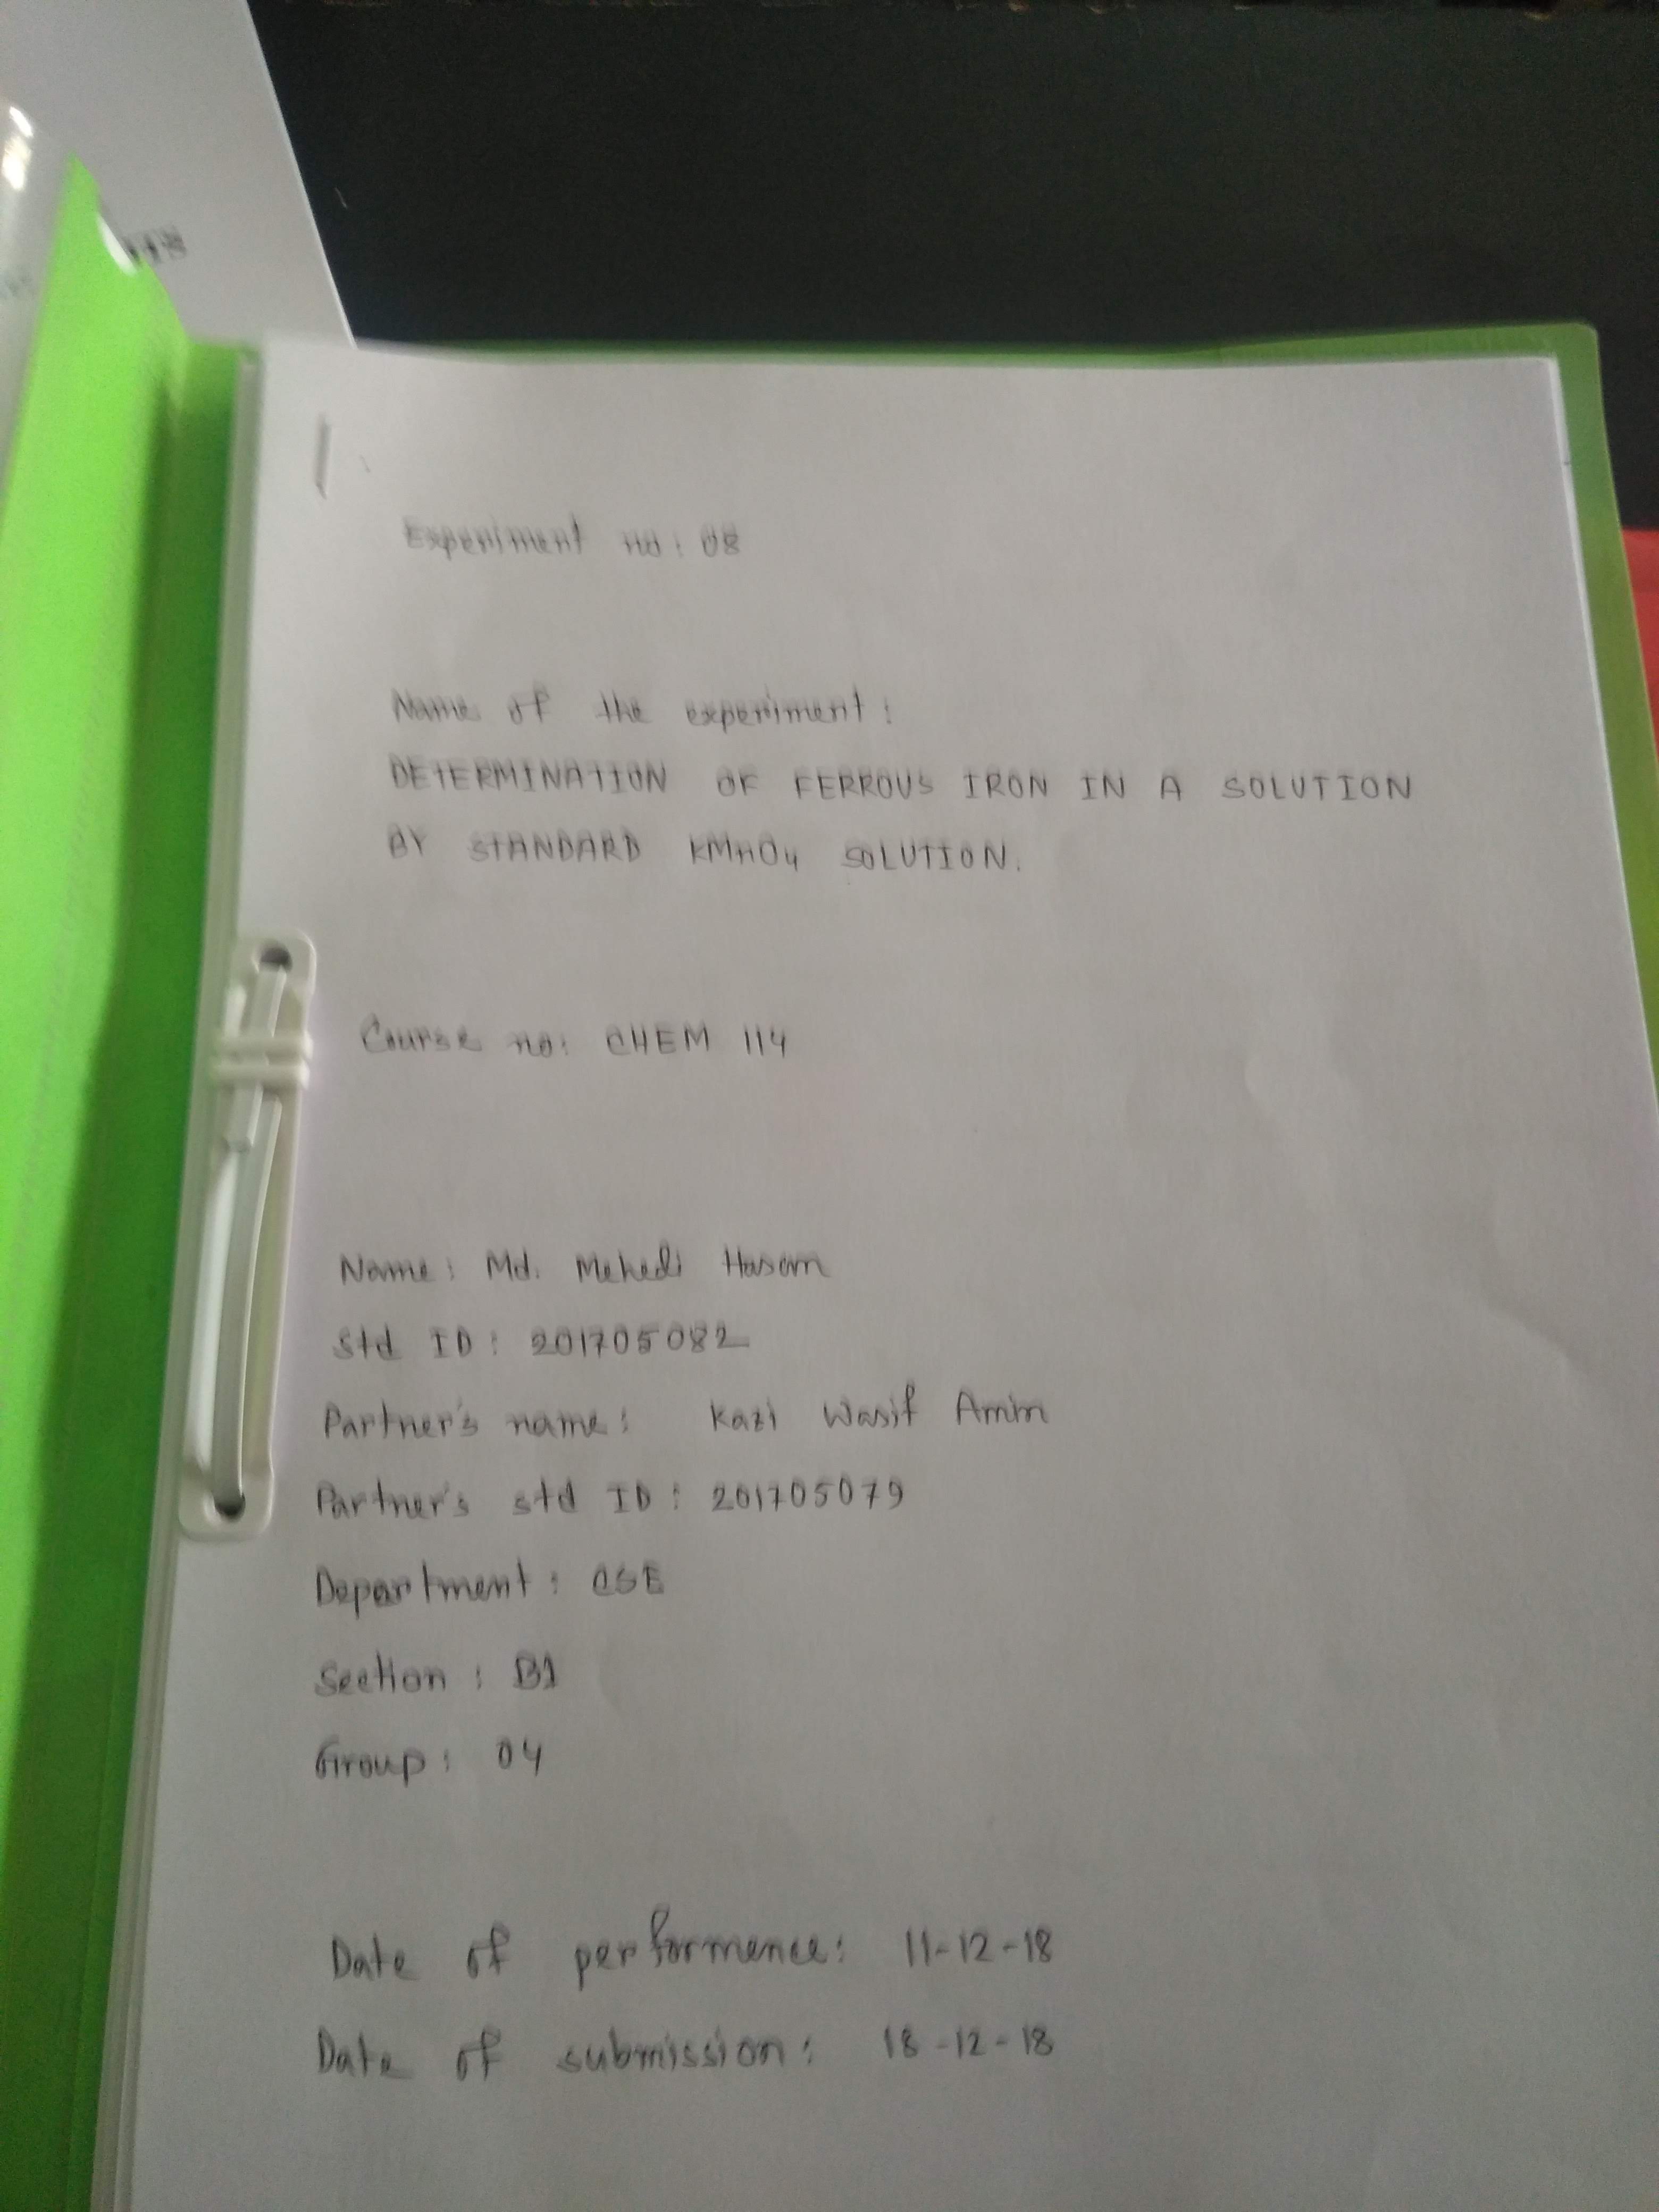 Experiment no: 08
Name of the experiment:
DETERMINATION OF FERROUS IRON IN A SOLUTION
BY STANDARD KMnO4 SOLUTION.
Course no: CHEM 114
Name: Md. Mehedi Hasan
Std ID: 201705082
Partner's name: Kazi Wasif Amin
Partner's std ID: 201705079
Department: CSE
Section: B1
Group: 04
Date of performence: 11-12-18
Date of submission: 18-12-18